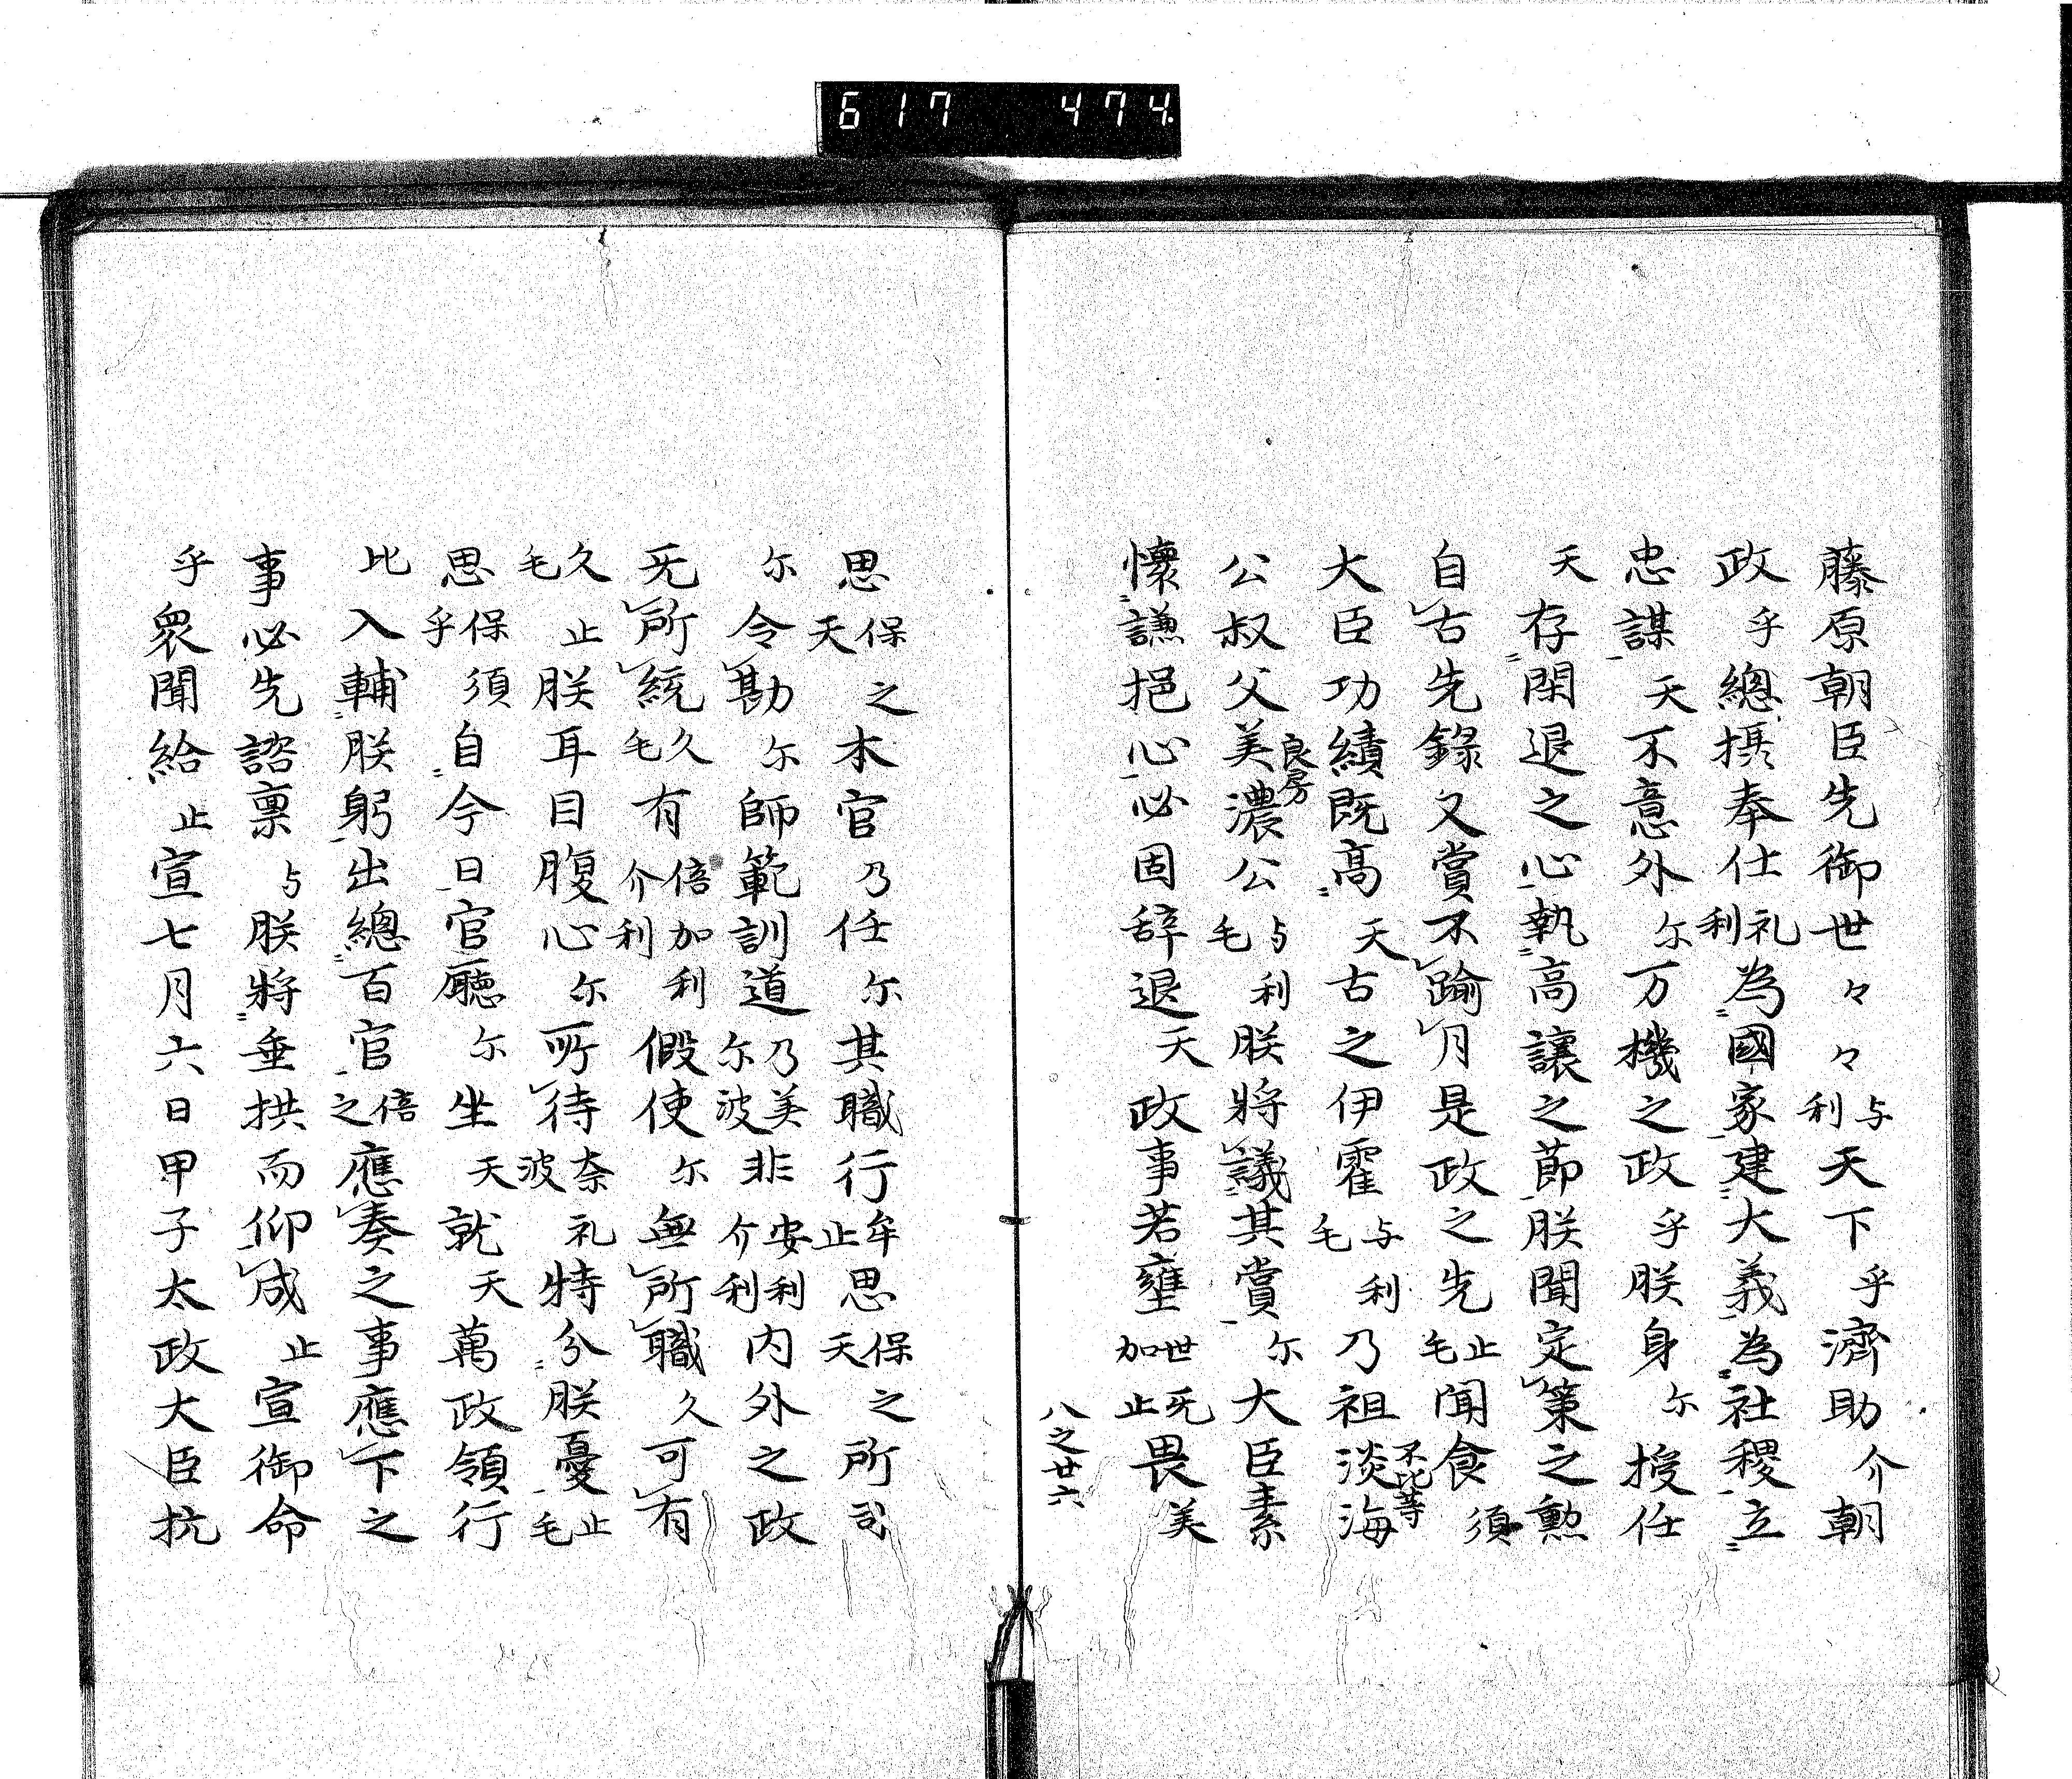 617 474
藤原朝臣先御世々々々与利天下乎濟助介朝
政乎總摂奉仕礼利為國家建大義為社稷立
忠謀天不意外尓万機之政乎朕身尓授任
天存閑退之心執高讓之節朕聞定策之勲
自古先錄又賞不踰月是政之先止毛聞食須
大臣功績既高天古之伊霍与毛利乃祖淡海
不比等
公叔父美濃公与毛利朕將議其賞尓大臣素
良房
懷謙挹心必固辞退天政事若壅世加旡止畏美
八之廿六
思保天之本官乃任尓其職行牟止思保天之所司
尓令勘尓師範訓道乃美尓波非安利介利内外之政
旡所統久毛有倍加利介利假使尓無所職久可有
久毛止朕耳目腹心尓所待奈礼波特分朕憂止毛
思保須乎自今日官廳尓坐天就天萬政領行
比入輔朕躬出總百官倍之應奏之事應下之
事必先諮禀与朕將垂拱而仰成止宣御命
乎衆聞給止宣七月六日甲子太政大臣抗